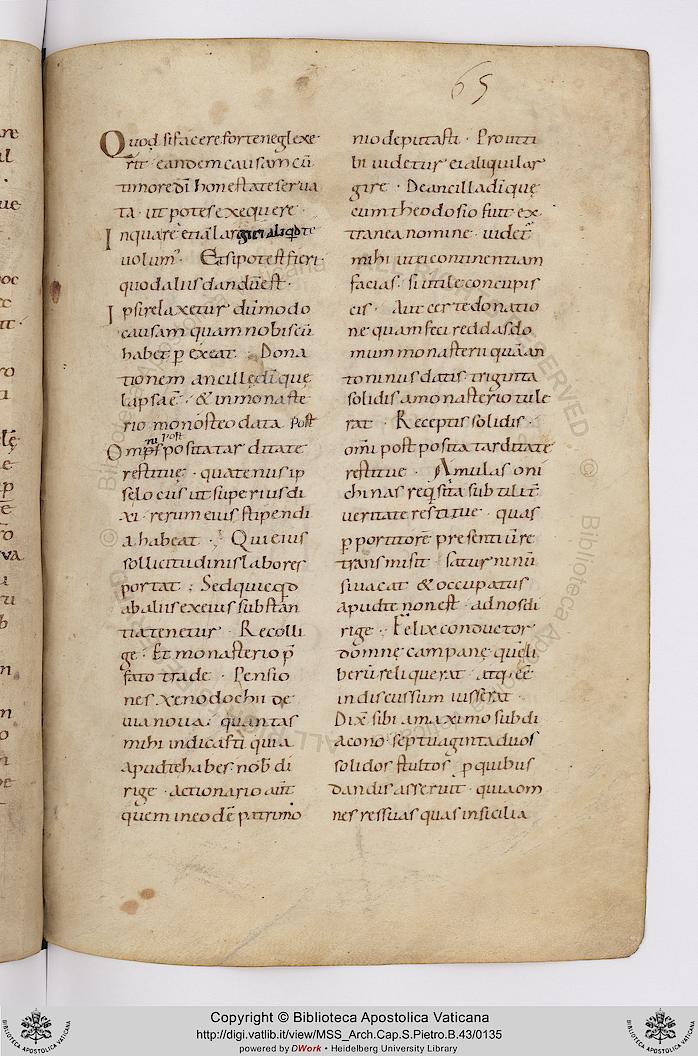 65
Quod si facere forte neglexe
rit · eandem causam cū
timore dī honestate serua
ta · ut potes exequere ·
Inquarē etiā lar giri aliqd te
uolum᾽ · Et si potest fieri ·
quod aliis dandū est ·
Ipsi relaxetur dūmodo
causam quam nobiscū
habet pexeat · Dona
tionem ancillę di quę
lapsa ē · & in monaste
rio monosteo data post
ni post
Omps posita tarditate
restituę · quatenus ip
se loeius ut superius di
xi · rerum eius stipendi
a habeat · Qui eius
sollicitudinis labores
portat : Sed quicqd
ab aliis ex eius substan
tia tenetur · Recolli
ge · Et monasterio p̄
fato trade · Pensio
nes xenodochii de
uia noua · quantas
mihi indicasti quia
apud te habes · nob̄ di
rige · actionario aūt
quem in eodē patrimo
nio deputasti · Prout ti
bi uidetur ei aliqui lar
gire · De ancilla di quę
cum theodosio fuit ex
tranea nomine · uidet̄
mihi ut ei continentiam
facias · si utile concupis
cis · Aut certe donatio
nē quam feci reddas do
mum monasterii quā an
toninus datis triginta
solidis a monasterio tule
rat · Receptis solidis ·
omī postposita tarditate
restitue · Amulas oni
chinas reqsita subtilit̄
ueritate restitue · quas
p portitorē presenti ūre
transmisit · Saturninū
si uacat & occupatus
apud te non est · ad nos di
rige · Felix conductor
domnę campanę quē li
berū reliquerat · atq· eē
indiscussum iusserat ·
Dix̄ sibi a maximo subdi
acono · septuaginta duos
solidos stultos p quibus
dandis asseruit · quia om
nes res suas quas in sicilia
Copyright © Biblioteca Apostolica Vaticana
http://digi.vatlib.it/view/MSS_Arch.Cap.S.Pietro.B.43/0135
powered by DWork • Heidelberg University Library